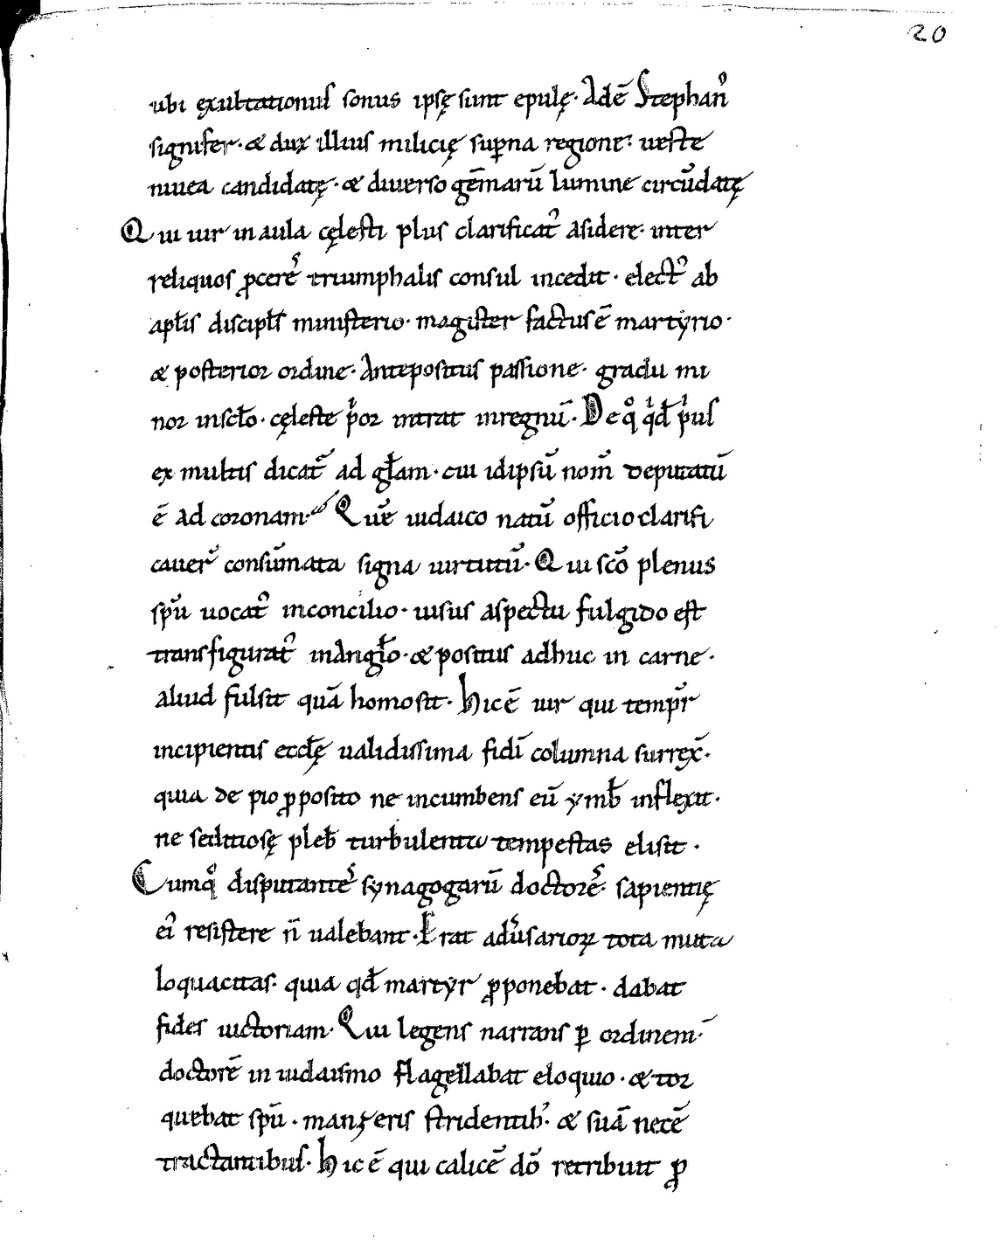 20
ubi exultationis sonus ipsę sunt epulę. Adē Stephan᾿
signifer. & dux illius milicię suꝑna regione. ueste
niuea candidatę. & diuerso gēmarū lumine circūdatę
Qui uir in aula cęlesti plus clarificat᾿ asidere. inter
reliquos ꝓcereſ᾿ triumphalis consul incedit. elect᾿ ab
apƚis discipƚis ministerio. magister factus ē martyrio.
& posterior ordine. Antepositus passione. gradu mi
nor inscƚo. cęleste p͛or intrat inregnū. De qͦ qͥđ pͥus
ex multis dicat᾿ ad gƚam. cui idipsū nom̄ deputatū
ē ad coronam. Quē iudaico natū officio clarifi
cauer̄ consūmata signa uirtutū. Qui scō plenus
spū uocat᾿ inconcilio. uisus aspectu fulgido est
transfigurat᾿ inAngƚo. & positus adhuc in carne.
aliud fulsit quā homo sit. hic ē uir qui temp̄r
incipientis eccƚę ualidissima fidī columna surrex̄.
quia de pio ꝓposito ne incumbens eū ymƀ inflexit.
ne seditiosę pleƀ turbulenta tempestas elisit.
Cumq᾿ disputanteſ᾿ synagogarū doctoreſ᾿ sapientię
ei᾿ resistere n̄ ualebant. Erat adūsarioꝝ tota muta
loquacitas. quia qđ martyr ꝓponebat. dabat
fides uictoriam. Qui legens narrans ꝑ ordinem.
doctorē in iudaismo flagellabat eloquio. & tor
quebat spū. manzeris stridentib᾿. & suā necē
tractantibus. hic ē qui calicē dō retribuit ꝓ